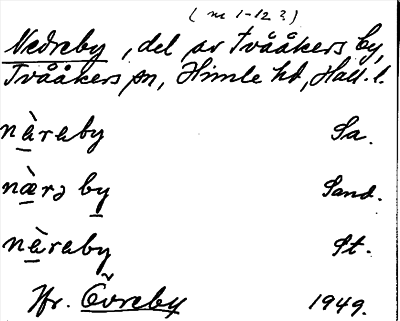 (nr 1-12?)
Nedreby, del av Tvååkers by,
Tvååkers sn, Himle hd, Hall. l.
nàraby Sa.
næ̀rə by Sand.
nàraby St.
Jfr. Övreby 1949.